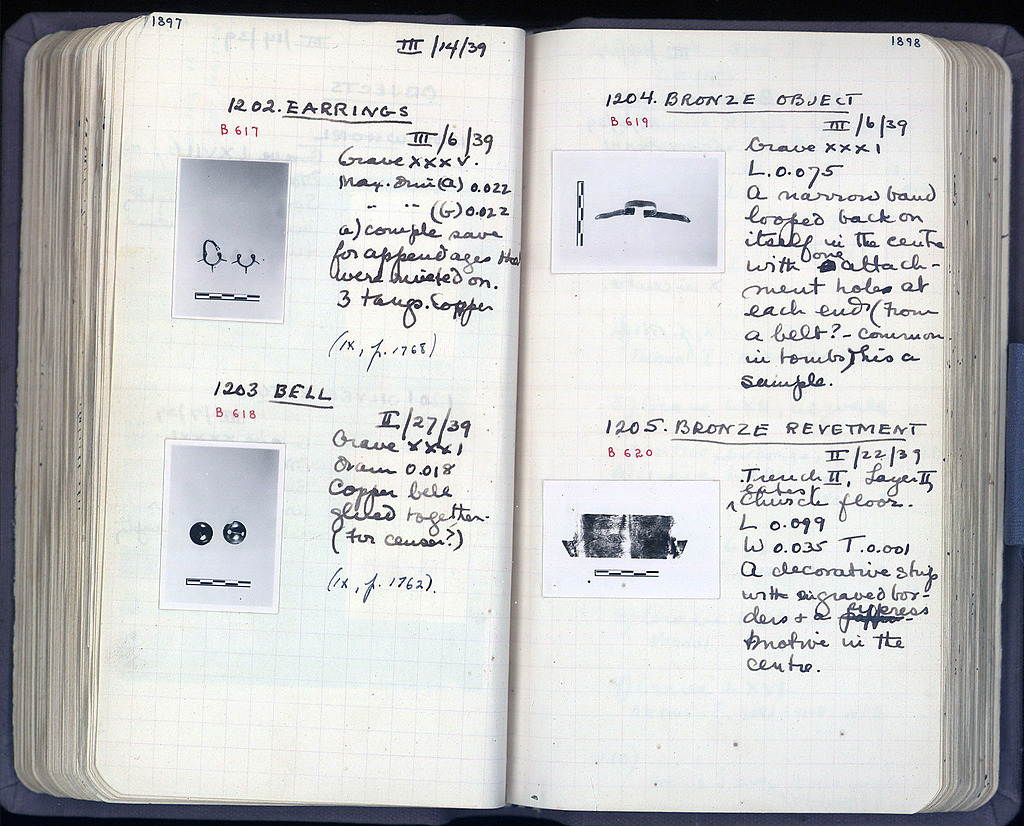 1897
III/14/39
1202. EARRINGS
B 617
III/6/39
Grave XXXV.
Max. Dim (a) 0.022
" " (b) 0.022
a) comple save
for appendages that
were riveted on.
3 tangs. Copper
(IX, p. 1768)
1203 BELL
B 618
II/27/39
Grave XXXI
Diam 0.018
Copper bell
glued together.
(For censer?)
(IX, p. 1762).
1898
1204. BRONZE OBJECT
B 619
III/6/39
Grave XXXI
L. 0.075
A narrow band
looped back on
itself in the centre
with one attach-
ment hole at
each end (From
a belt? - common
in tombs) this a
sample.
1205. BRONZE REVETMENT
B 620
II/22/39
Trench II, Layer II,
latest
church floor.
L 0.099
W 0.035 T. 0.001
A decorative strip
with engraved bor-
ders + a cypress
motive in the
centre.